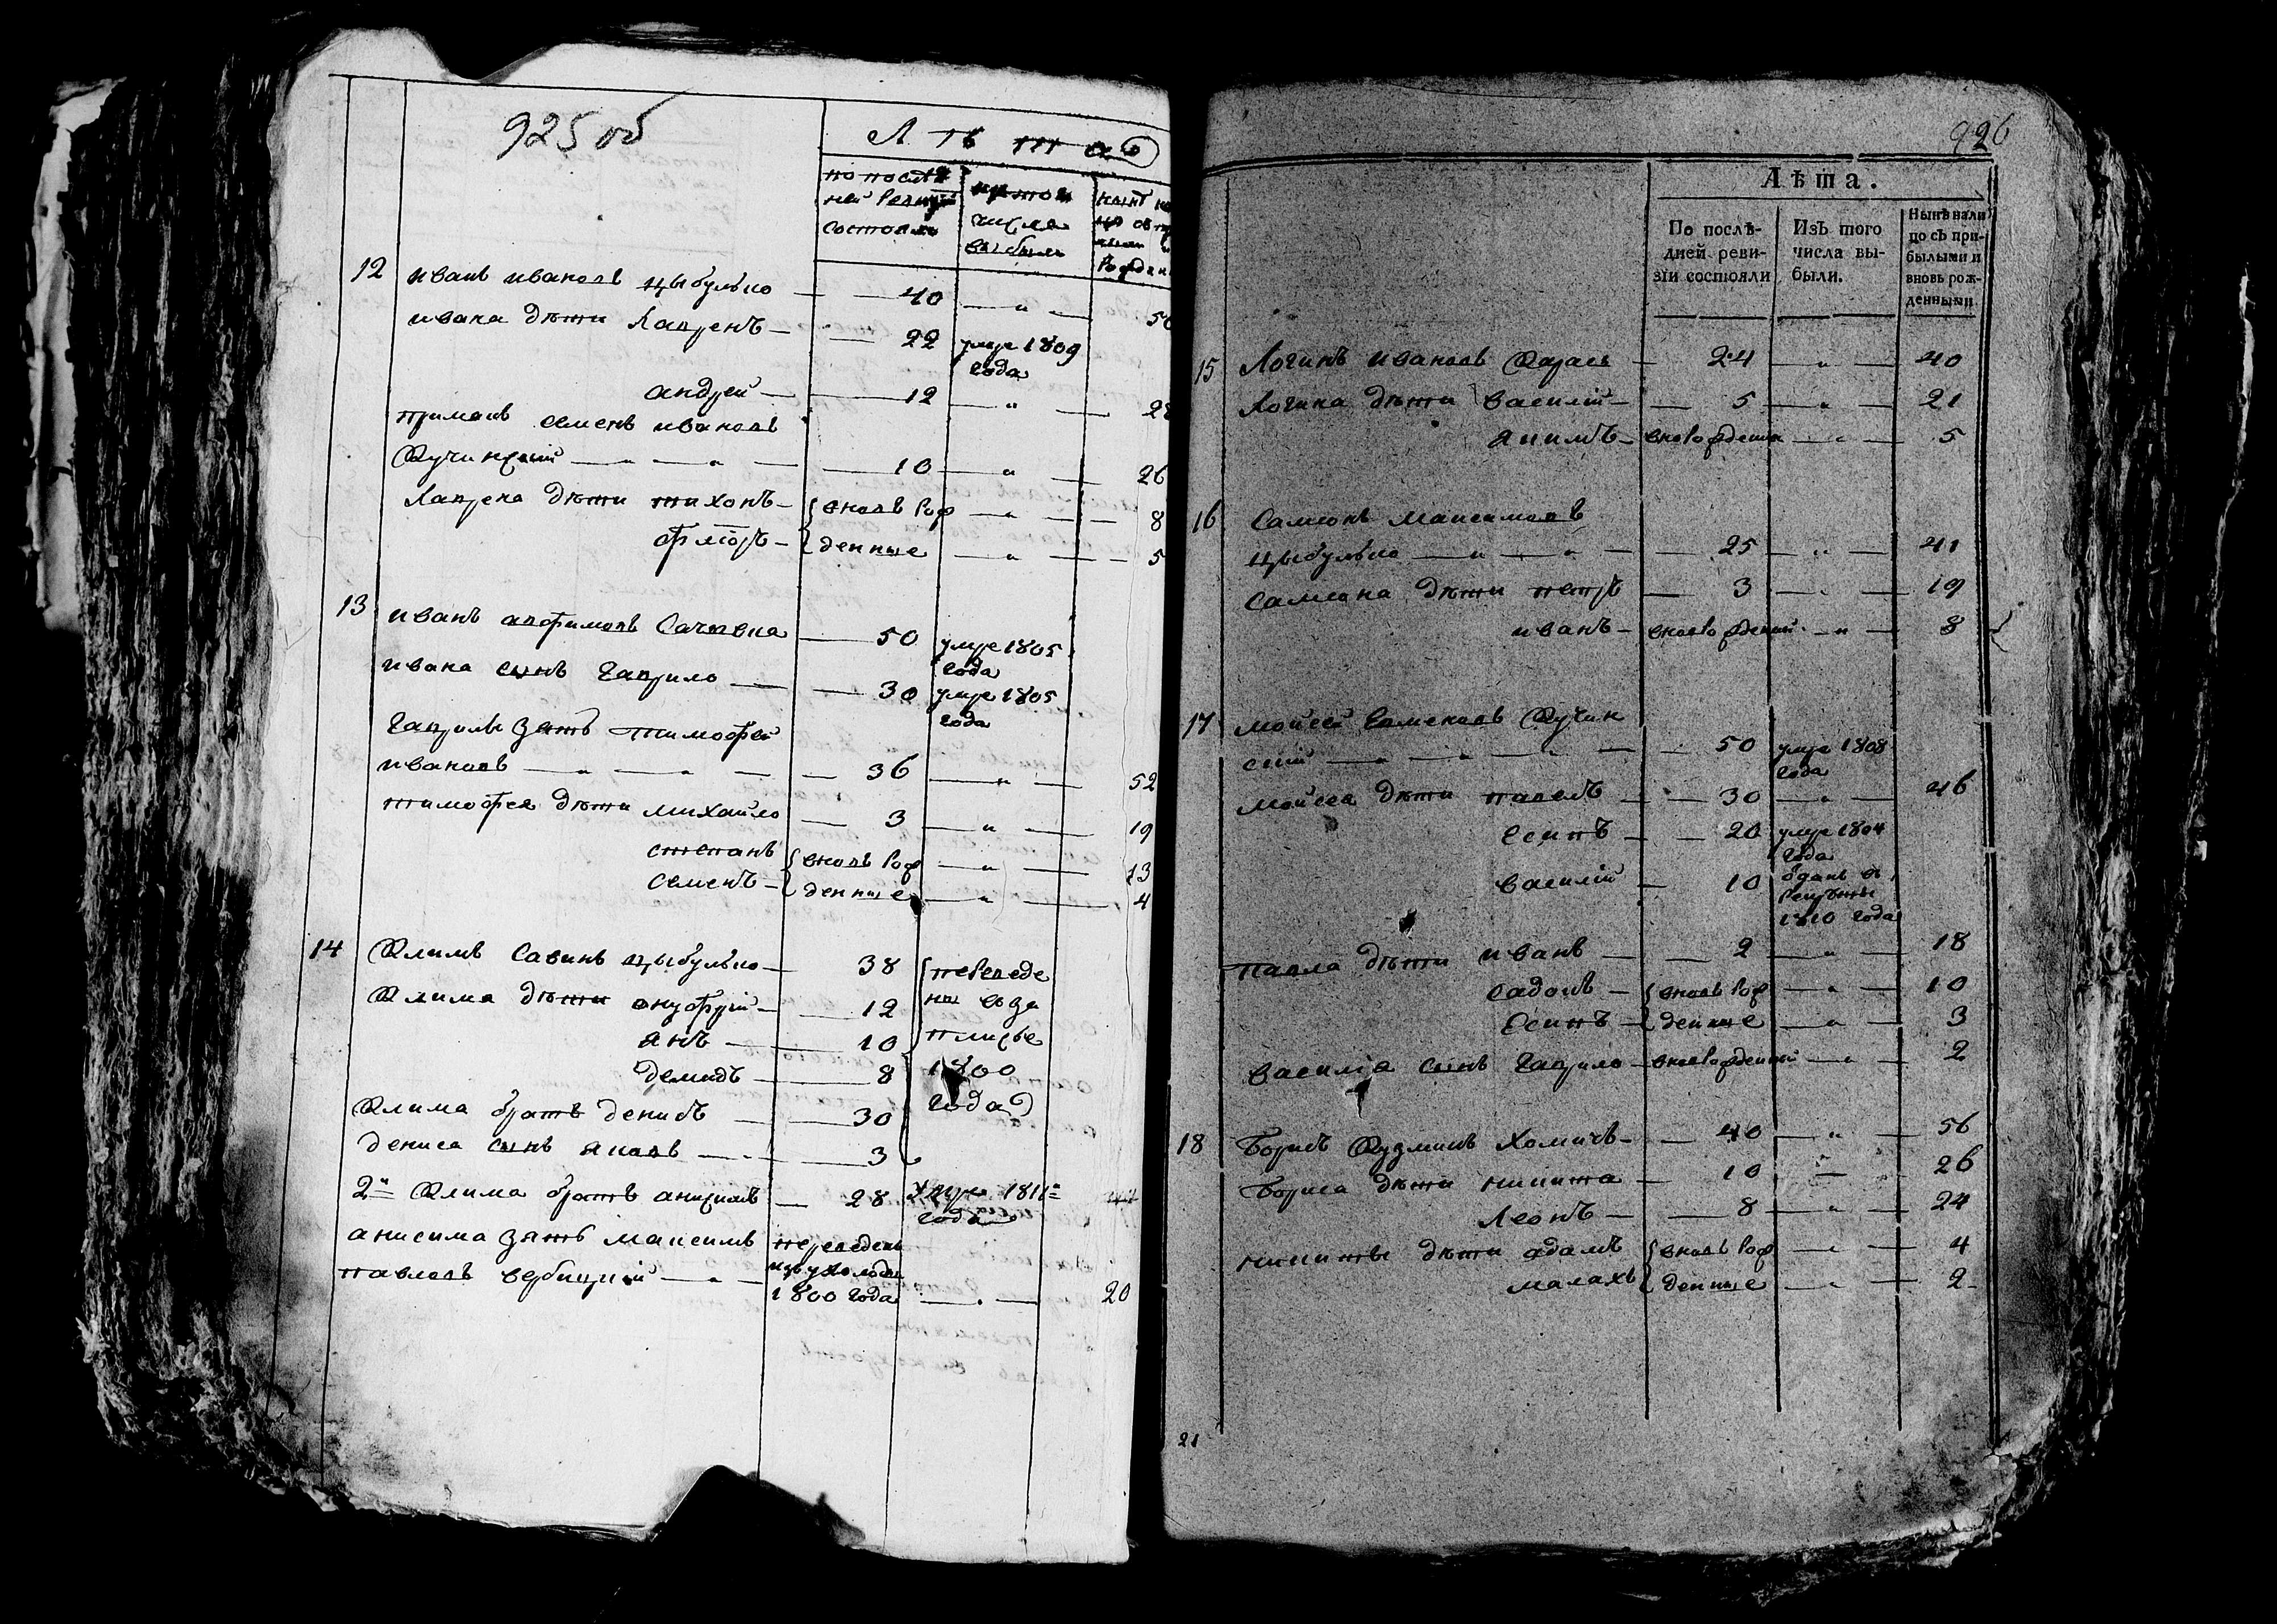 925 об
Лѣта
по послѣд
ней Ревизіи
состояли
изъ того
числа
выбыли
нынѣ на
12 иванъ ивановъ цыбулько — 40 — „ — 56
ивана дѣти Лавренъ — 22 умре 1809
года
андрей — 12 — „ — 28
примакъ семенъ ивановъ
Кучинскій — „ — „ — 10 — „ — 26
Лаврена дѣти тихонъ — вновь Рож — „ — 8
ѳедоръ — денные — „ — 5
13 иванъ
50 умре 1805
года
ивана сынъ Гаврило — 30 умре 1805
года
Гаврилы зять тимофей
ивановъ — „ — „ — 36 — „ — 52
тимофея дѣти михайло — 3 — „ — 19
степанъ вновь Рож — „ — 13
семенъ — денные — „ — 4
14 Климъ савинъ цыбулько — 38 переведе
Клима дѣти онуфрій — 12 ны
янъ — 10
демидъ — 8 1800
года
Клима братъ денисъ — 30
дениса сынъ яковъ — 3
2й Клима братъ анисимъ — 28 умре 1811го
года
анисима зять максимъ переведенъ
павловъ вербицкій — „ — изъ
1800 года — „ — 20
926
Лѣта.
По послѣ-
дней реви-
зіи состояли
Изъ того
числа вы-
были.
Нынѣ нали
цо съ при-
былыми и
вновь рож-
денными
15 Логинъ ивановъ Карась — 24 — „ — 40
Логина дѣти василій — 5 — „ — 21
якимъ — вноврожденный — „ — 5
16 Самсонъ максимовъ
цыбулько — „ — „ — 25 — „ — 41
самсона дѣти петръ — 3 — „ — 19
иванъ — вноврожденный — „ — 8
17 мойсей семеновъ Кучин
скій — „ — „ — 50 умре 1808
года
мойсея дѣти павелъ — 30 — „ — 46
есипъ — 20 умре 1804
года
василій — 10 отданъ въ
рекруты
1810 года
павла дѣти иванъ — 2 — „ — 18
вновь Рож — „ — 10
есипъ — денные — „ — 3
василія сынъ Гаврило — вноврожденный — „ — 2
18 Борисъ Кузминъ Хомичъ — 40 — „ — 56
Бориса дѣти никита — 10 — 26
Леонъ — 8 — „ — 24
никиты дѣти адамъ вновь Рож — „ — 4
малахъ денные — „ — 2
21